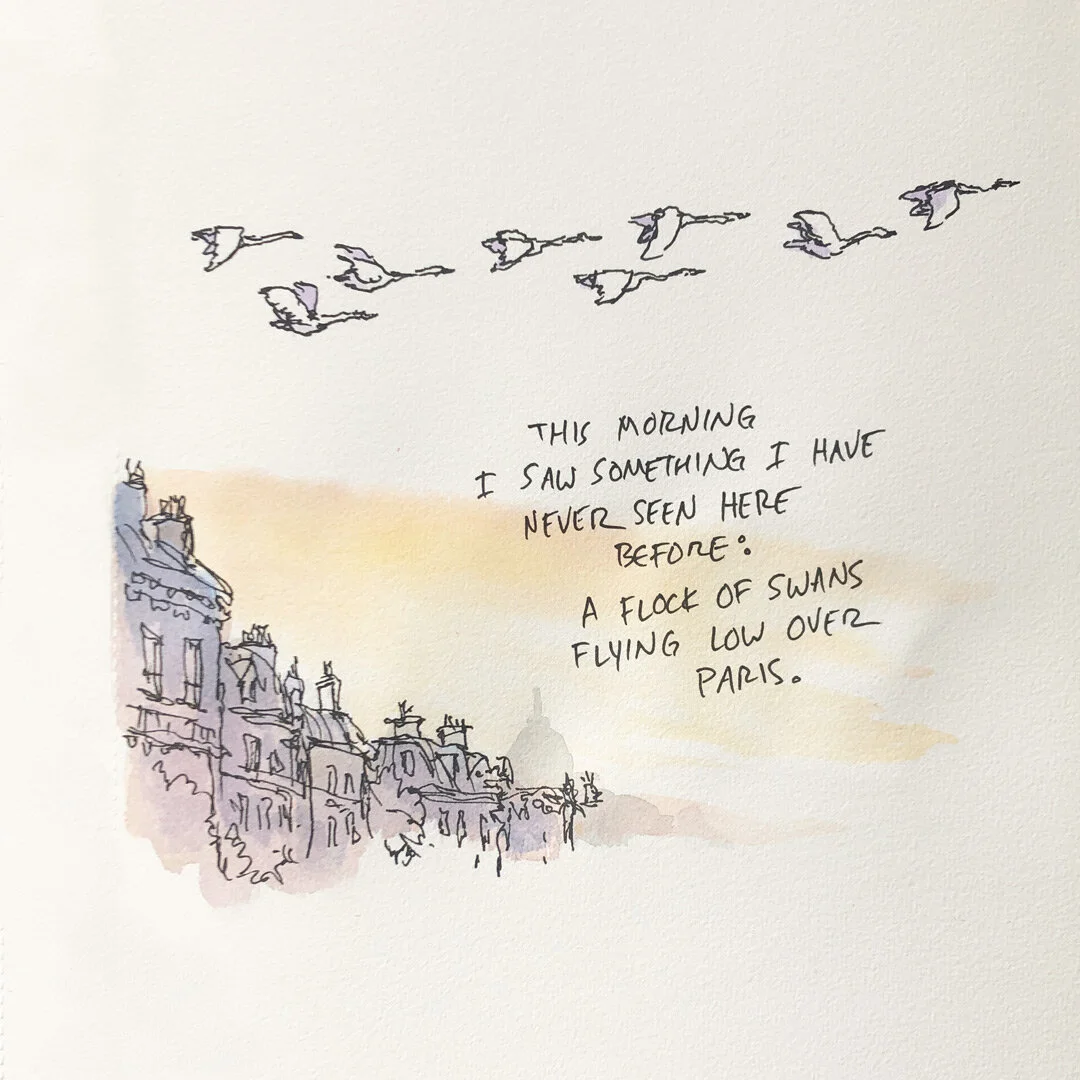 THIS MORNING
I SAW SOMETHING I HAVE
NEVER SEEN HERE
BEFORE:
A FLOCK OF SWANS
FLYING LOW OVER
PARIS.